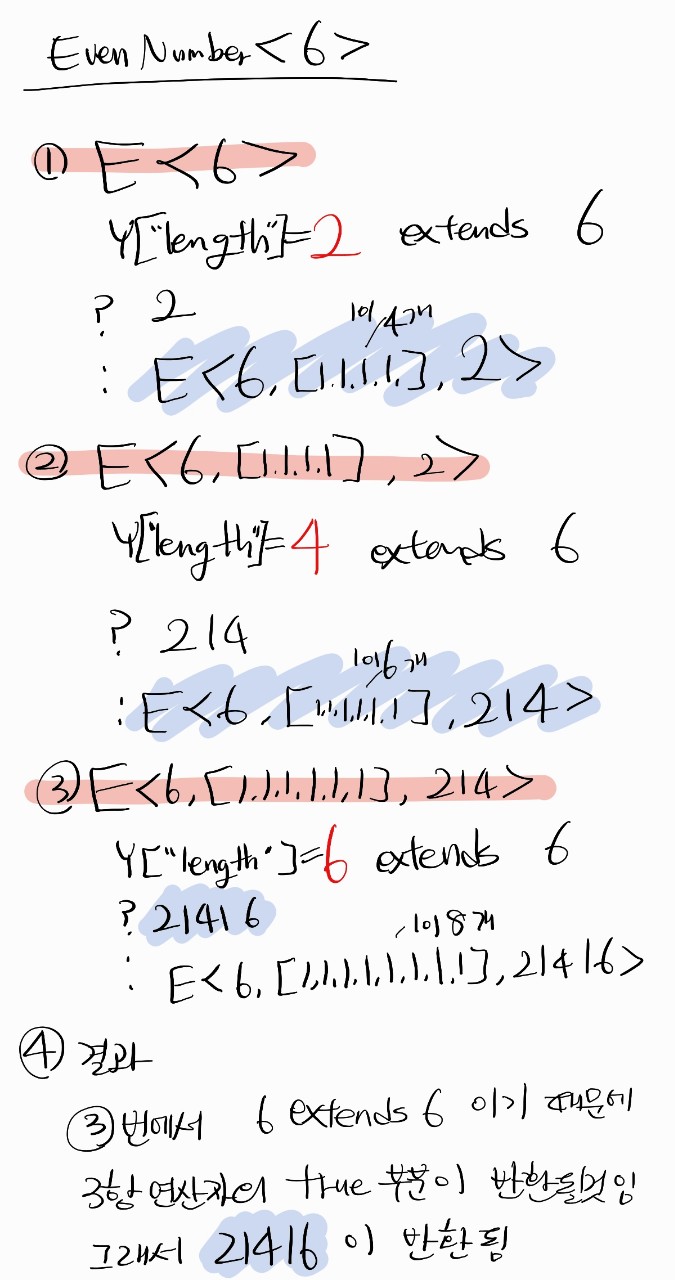 Even Number<6>
① E<6>
Y["length"]=2 extends 6
? 2
1이 4개
: E<6, [1,1,1,1], 2>
② E<6, [1,1,1,1], 2>
Y["length"]=4 extends 6
? 2|4
1이 6개
: E<6, [1,1,1,1,1,1], 2|4>
③ E<6, [1,1,1,1,1,1], 2|4>
Y["length"]=6 extends 6
? 2|4|6
1이 8개
: E<6, [1,1,1,1,1,1,1,1], 2|4|6>
④ 결과
③번에서 6 extends 6 이기 때문에
3항 연산자의 true 부분이 반환될것임
그래서 2|4|6 이 반환됨